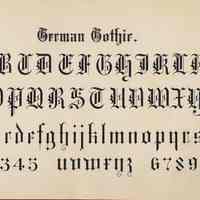 German Gothic.
BCDEFGHIJKL
OPQRSTUVWXY
cdefghijklmnopqrs
345 uvwxyz 6789